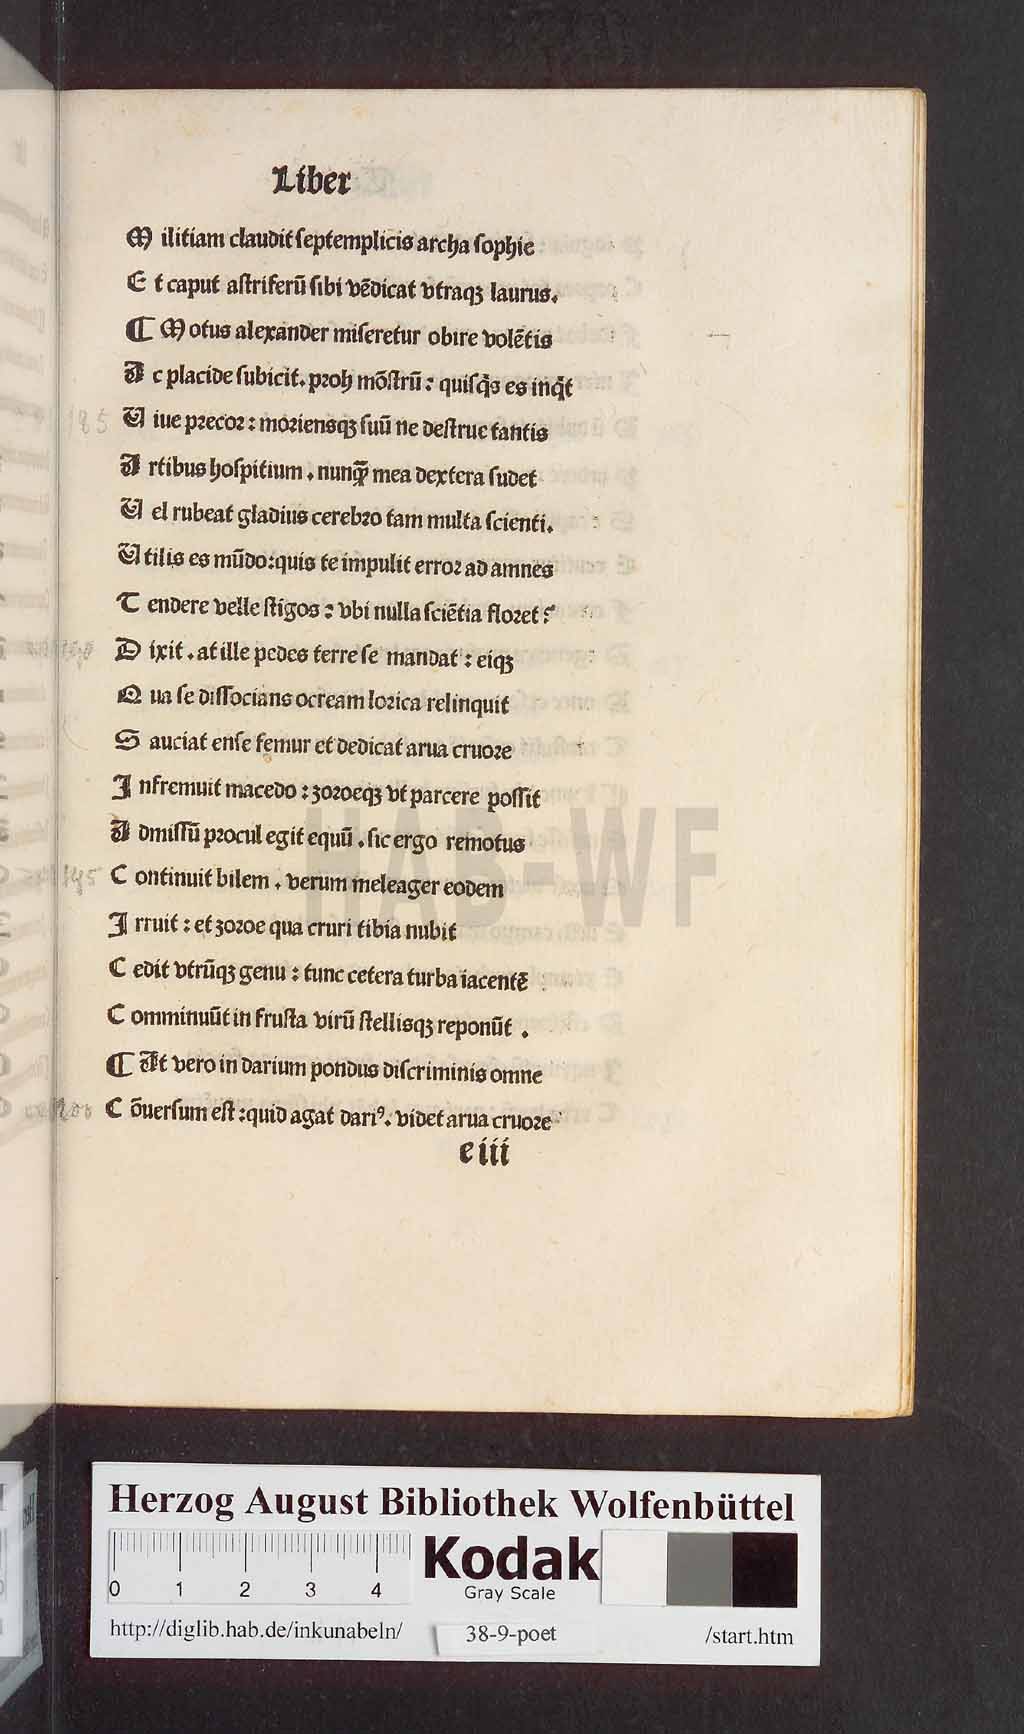 Liber
M ilitiam claudit ſeptemplicis archa ſophie
E t caput aſtriferū ſibi vēdicat vtraqꝫ laurus.
¶ Motus alexander miſeretur obire volētis
A c placide ſubicit. proh mōſtrū: quiſq̇s es inq̇t
185 V iue precor: moriensqꝫ ſuū ne deſtrue tantis
A rtibus hoſpitium. nunqͣ̄ mea dextera ſudet
V el rubeat gladius cerebro tam multa ſcienti.
V tilis es mūdo: quis te impulit error ad amnes
T endere velle ſtigos: vbi nulla ſciētia floret?
190 D ixit. at ille pedes terre ſe mandat: eiqꝫ
Q ua ſe diſſocians ocream lorica relinquit
S auciat enſe femur et dedicat arua cruore
I nfremuit macedo: zoroeqꝫ vt parcere poſſit
A dmiſſū procul egit equū. ſic ergo remotus
195 C ontinuit bilem. verum meleager eodem
I rruit: et zoroe qua cruri tibia nubit
C edit vtrūqꝫ genu: tunc cetera turba iacentē
C omminuūt in fruſta virū ſtellisqꝫ reponūt.
¶ At vero in darium pondus diſcriminis omne
200 C ōuerſum eſt: quid agat dariꝰ. videt arua cruore
e iii
HAB-WF
Herzog August Bibliothek Wolfenbüttel
0 1 2 3 4
Kodak
Gray Scale
http://diglib.hab.de/inkunabeln/ 38-9-poet /start.htm